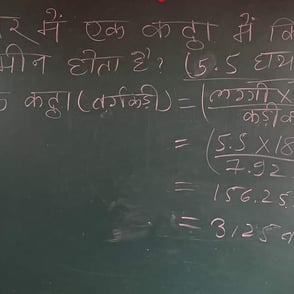 में एक कट्ठा में
होता है? (5.5
कट्ठा (वर्गकड़ी) = (लग्गी ×
= (5.5 × 18
7.92
= 156.25
= 3125